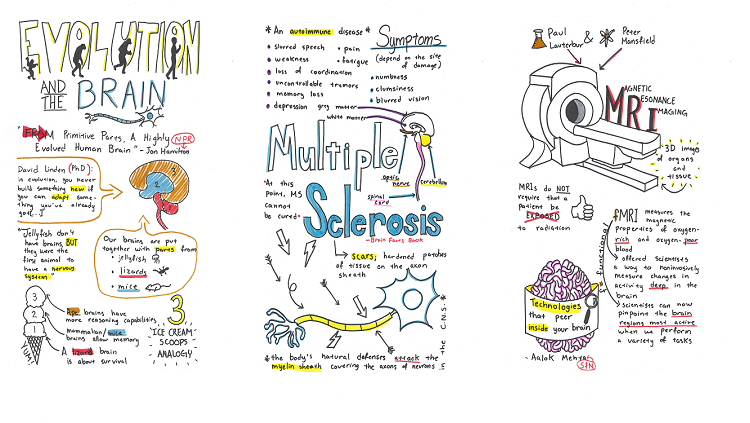 EVOLUTION
AND THE BRAIN
"FROM Primitive Parts, A Highly
Evolved Human Brain" - Jon Hamilton
NPR
David Linden (PhD):
in evolution, you never
build something new if
you can adapt some-
thing you've already
got[...]
3
2
1
"Jellyfish don't
have brains, BUT
they were the
first animal to
have a nervous
system"
Our brains are put
together with parts from:
• jellyfish
• lizards
• mice
3
2
1
YUM
Ape brains have
more reasoning capabilities
mammalian/mice
brains allow memory
A lizard brain
is about survival
3
ICE CREAM
SCOOPS
ANALOGY
* An autoimmune disease *
Symptoms
(depend on the site
of damage)
• slurred speech
• weakness
• loss of coordination
• uncontrollable tremors
• memory loss
• depression
• pain
• fatigue
• numbness
• clumsiness
• blurred vision
grey matter
white matter
optic nerve
cerebellum
spinal cord
Multiple
Sclerosis
"At this
point, MS
cannot
be cured"
- Brain Facts Book
scars; hardened patches
of tissue on the axon
sheath
* the body's natural defenses attack the
myelin sheath covering the axons of neurons
IN THE C.N.S. *
Paul Lauterbur & Peter Mansfield
MAGNETIC
RESONANCE
IMAGING
MRI
3D images
of organs
and
tissue
MRIs do NOT
require that a
patient be
EXPOSED
to radiation
fMRI measures the
magnetic
properties of oxygen-
rich and oxygen-poor
blood
f = functional
→ offered scientists
a way to noninvasively
measure changes in
activity deep in the
brain
→ Scientists can now
pinpoint the brain
regions most active
when we perform
a variety of tasks
Technologies
that peer
inside your brain
- Aalok Mehta
SfN